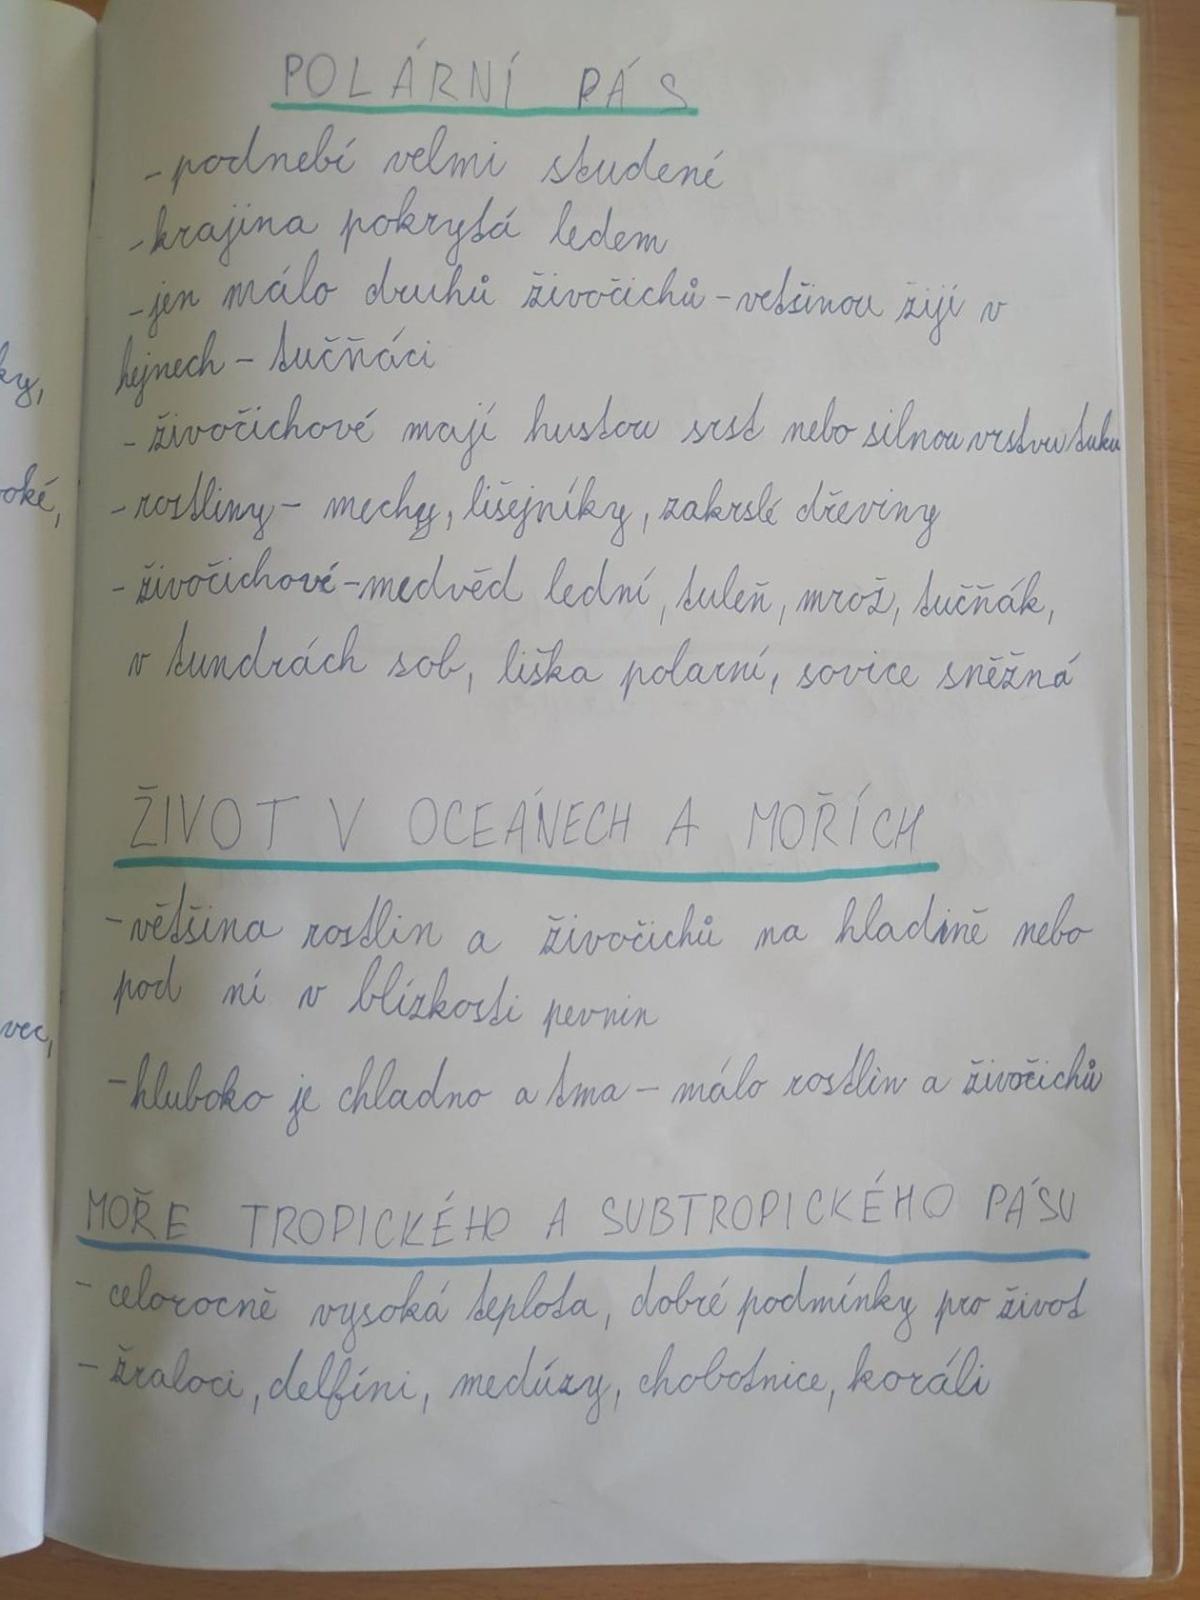 POLÁRNÍ PÁS
- podnebí velmi studené
- krajina pokrytá ledem
- jen málo druhů živočichů - vetšinou žijí v
hejnech - tučňáci
- živočichové mají hustou srst nebo silnou vrstvu tuku
- rostliny - mechy, lišejníky, zakrslé dřeviny
- živočichové - medvěd lední, tuleň, mrož, tučňák,
v tundrách sob, liška polarní, sovice sněžná
ŽIVOT V OCEÁNECH A MOŘÍCH
- většina rostlin a živočichů na hladině nebo
pod ní v blízkosti pevnin
- hluboko je chladno a tma - málo rostlin a živočichů
MOŘE TROPICKÉHO A SUBTROPICKÉHO PÁSU
- celorocně vysoká teplota, dobré podmínky pro život
- žraloci, delfíni, medúzy, chobotnice, koráli
ky,
oké,
vec,